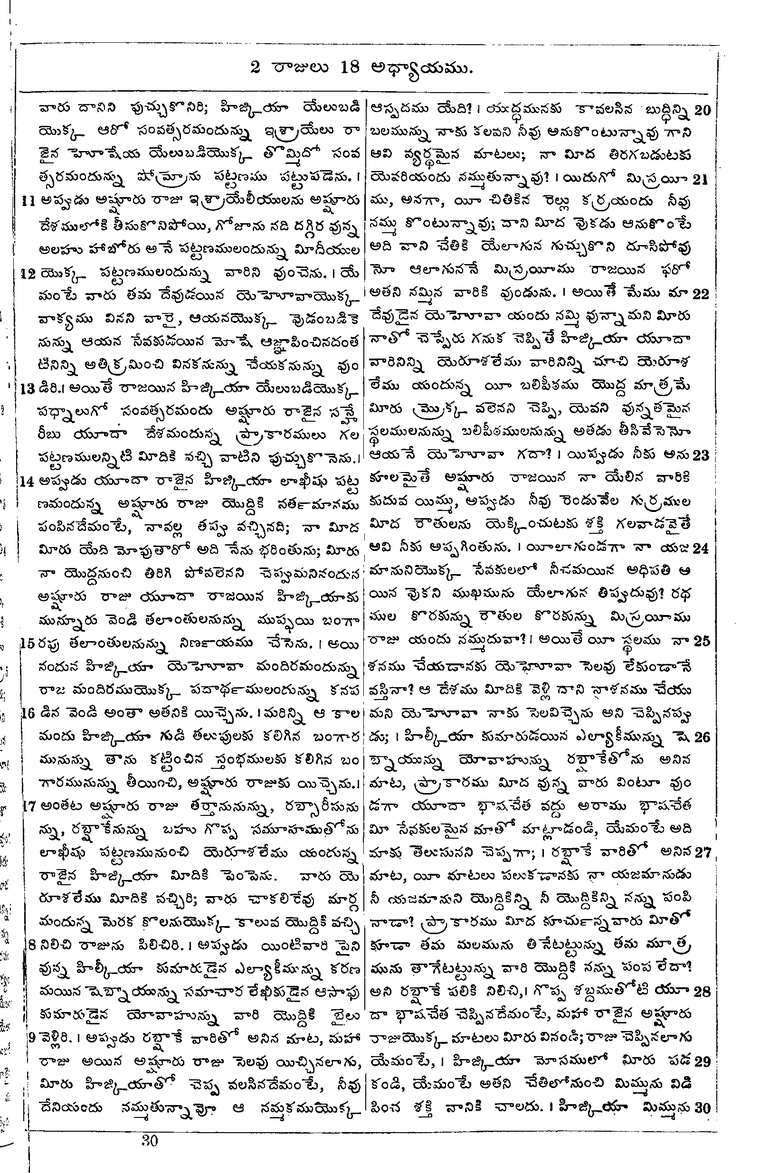 2 రాజులు 18 అధ్యాయము.
వారు దానిని పుచ్చుకొనిరి; హిజ్కియా యేలుబడి
యొక్క ఆరో సంవత్సరమందున్ను ఇశ్రాయేలు రా
జైన హొషేయ యేలుబడియొక్క తొమ్మిదో సంవ
త్సరమందున్ను షోమ్రోను పట్టణము పట్టుపడెను. ।
11 అప్పుడు అష్షూరు రాజు ఇశ్రాయేలీయులను అష్షూరు
దేశములోకి తీసుకొనిపోయి, గోజాను నది దగ్గిర వున్న
అలహు హాబోరు అనే పట్టణములందున్ను మిాదీయుల
12 యొక్క పట్టణములందున్ను వారిని వుంచెను. । యే
మంటే వారు తమ దేవుడయిన యెహోవాయొక్క
వాక్యము వినని వారై, ఆయనయొక్క వుడంబడికె
నున్ను ఆయన సేవకుడయిన మోషే ఆజ్ఞాపించినదంత
టినిన్ని అతిక్రమించి వినకనున్ను చేయకనున్ను వుం
13 డిరి. । అయితే రాజయిన హిజ్కియా యేలుబడియొక్క
పధ్నాలుగో సంవత్సరమందు అష్షూరు రాజైన సన్హే
రీబు యూదా దేశమందున్న ప్రాకారములు గల
పట్టణములన్నిటి మిాదికి వచ్చి వాటిని పుచ్చుకొనెను. ।
14 అప్పుడు యూదా రాజైన హిజ్కియా లాఖీషు పట్ట
ణమందున్న అష్షూరు రాజు యొద్దికి వర్తమానము
పంపినదేమంటే, నావల్ల తప్పు వచ్చినది; నా మిాద
మిారు యేది మోపుతారో అది నేను భరింతును; మిారు
నా యొద్దనుంచి తిరిగి పోవలెనని చెప్పుమనినందున
అష్షూరు రాజు యూదా రాజయిన హిజ్కియాకు
మున్నూరు వెండి తలాంతులనున్ను ముప్పయి బంగా
15 రపు తలాంతులనున్ను నిర్ణయము చేసెను. । అయి
నందున హిజ్కియా యెహోవా మందిరమందున్ను
రాజ మందిరముయొక్క పదార్థములందున్ను కనప
16 డిన వెండి అంతా అతనికి యిచ్చెను. । మరిన్ని ఆ కాల
మందు హిజ్కియా గుడి తలుపులకు కలిగిన బంగార
మునున్ను తాను కట్టించిన స్తంభములకు కలిగిన బం
గారమునున్ను తీయించి, అష్షూరు రాజుకు యిచ్చెను. ।
17 అంతట అష్షూరు రాజు తర్తానునున్ను, రబ్సారీసును
న్ను, రబ్షాకేనున్ను బహు గొప్ప సమూహముతోను
లాఖీషు పట్టణమునుంచి యెరూశలేము యందున్న
రాజైన హిజ్కియా మిాదికి పంపెను. వారు యె
రూశలేము మిాదికి వచ్చిరి; వారు చాకలిరేవు మార్గ
మందున్న మెరక కొలనుయొక్క కాలువ యొద్దికి వచ్చి
8 నిలిచి రాజును పిలిచిరి. । అప్పుడు యింటివారి పైని
వున్న హిల్కీయా కుమారుడైన ఎల్యాకీమున్ను కరణ
మయిన షెబ్నాయున్ను సమాచార లేఖీకుడైన ఆసాఫు
కుమారుడైన యోవాహున్ను వారి యొద్దికి బైలు
9 వెళ్లిరి. । అప్పుడు రబ్షాకే వారితో అనిన మాట, మహా
రాజు అయిన అష్షూరు రాజు సెలవు యిచ్చినలాగు,
మిారు హిజ్కియాతో చెప్ప వలసినదేమంటే, నీవు
దేనియందు నమ్ముతున్నావో ఆ నమ్మకముయొక్క
ఆస్పదము యేది? । యుద్ధమునకు కావలసిన బుద్ధిన్ని 20
బలమున్ను నాకు కలవని నీవు అనుకొంటున్నావు గాని
అవి వ్యర్థమైన మాటలు; నా మిాద తిరగబడుటకు
యెవరియందు నమ్ముతున్నావు? । యిదుగో మిస్రయీ 21
ము, అనగా, యీ చితికిన రెల్లు కర్రయందు నీవు
నమ్ము కొంటున్నావు; దాని మిాద వొకడు ఆనుకొంటే
అది వాని చేతికి యేలాగున గుచ్చుకొని దూసిపోవు
నో ఆలాగుననే మిస్రయీము రాజయిన ఫరో
అతని నమ్మిన వారికి వుండును. । అయితే మేము మా 22
దేవుడైన యెహోవా యందు నమ్మి వున్నామని మిారు
నాతో చెప్పేరు గనుక చెప్పితే హిజ్కియా యూదా
వారినిన్ని యెరూశలేము వారినిన్ని చూచి యెరూశ
లేము యందున్న యీ బలిపీఠము యొద్ద మాత్రమే
మిారు మ్రొక్క వలెనని చెప్పి, యెవని వున్నతమైన
స్థలములనున్ను బలిపీఠములనున్ను అతడు తీసివేసెనో
ఆయనే యెహోవా గదా? । యిప్పుడు నీకు అను 23
కూలమైతే అష్షూరు రాజయిన నా యేలిన వారికి
కుదువ యిమ్ము, అప్పుడు నీవు రెండువేల గుర్రముల
మిాద రౌతులను యెక్కించుటకు శక్తి గలవాడవైతే
అవి నీకు అప్పగింతును. । యీలాగుండగా నా యజ 24
మానునియొక్క సేవకులలో నీచమయిన అధిపతి అ
యిన వొకని ముఖమును యేలాగున తిప్పుదువు? రథ
ముల కొరకున్ను రౌతుల కొరకున్ను మిస్రయీము
రాజు యందు నమ్ముదువా? । అయితే యీ స్థలము నా 25
శనము చేయడానకు యెహోవా సెలవు లేకుండానే
వస్తినా? ఆ దేశము మిాదికి వెళ్లి దాని నాశనము చేయు
మని యెహోవా నాకు సెలవిచ్చెను అని చెప్పినప్పు
డు; । హిల్కీయా కుమారుడయిన ఎల్యాకీమున్ను షె 26
బ్నాయున్ను యోవాహున్ను రబ్షాకేతోను అనిన
మాట, ప్రాకారము మిాద వున్న వారు వింటూ వుం
డగా యూదా భాషచేత వద్దు అరాము భాషచేత
మిా సేవకులమైన మాతో మాట్లాడండి, యేమంటే అది
మాకు తెలుసునని చెప్పగా; । రబ్షాకే వారితో అనిన 27
మాట, యీ మాటలు పలుకడానకు నా యజమానుడు
నీ యజమానుని యొద్దికిన్ని నీ యొద్దికిన్ని నన్ను పంపి
నాడా? ప్రాకారము మిాద కూర్చున్నవారు మిాతో
కూడా తమ మలమును తినేటట్టున్ను తమ మూత్ర
మును తాగేటట్టున్ను వారి యొద్దికి నన్ను పంప లేదా?
అని రబ్షాకే పలికి నిలిచి, । గొప్ప శబ్దముతోటి యూ 28
దా భాషచేత చెప్పినదేమంటే, మహా రాజైన అష్షూరు
రాజుయొక్క మాటలు మిారు వినండి; రాజు చెప్పినలాగు
యేమంటే, । హిజ్కియా మోసములో మిారు పడ 29
కండి, యేమంటే అతని చేతిలోనుంచి మిమ్మును విడి
పించ శక్తి వానికి చాలదు. । హిజ్కియా మిమ్మును 30
30